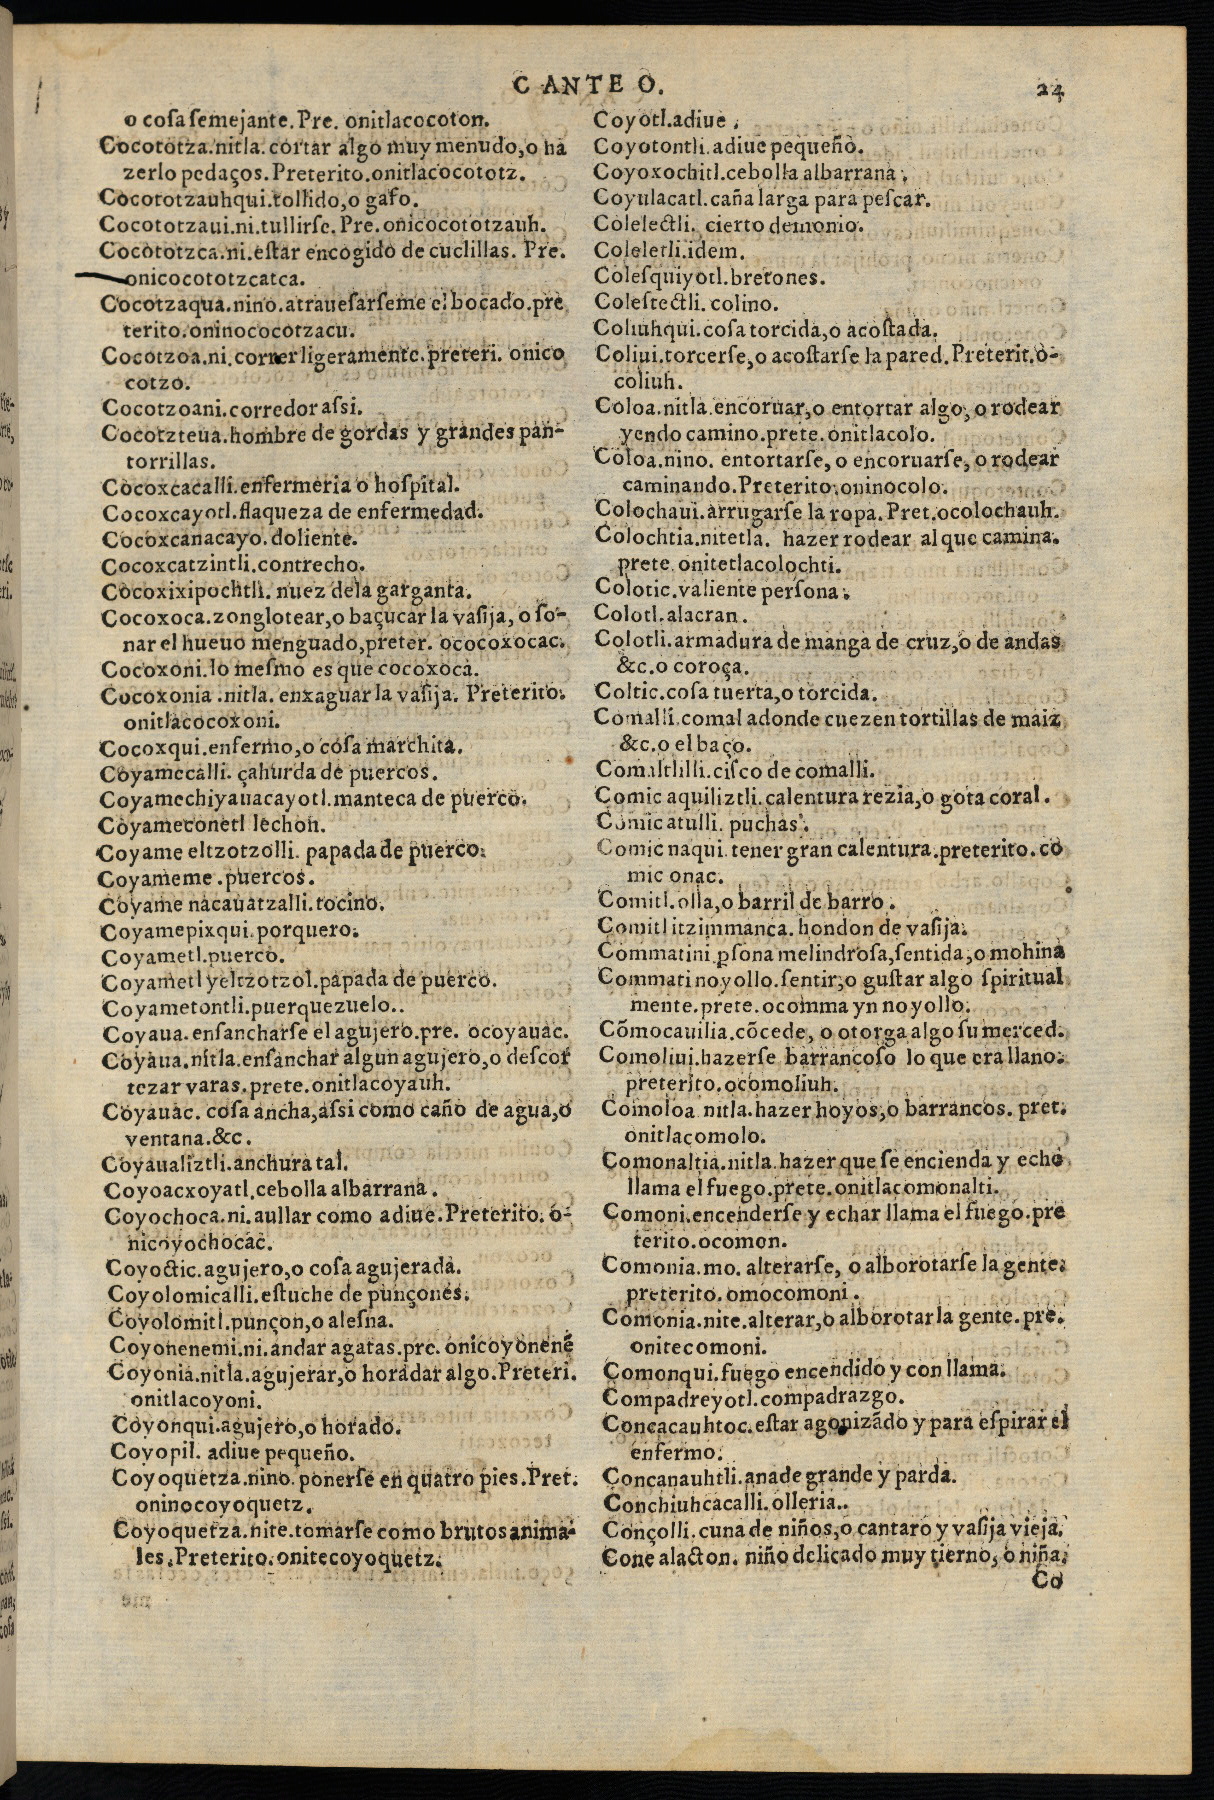 C ANTE O.
24
o cosa semejante. Pre. onitlacocoton.
Cocototza.nitla. cortar algo muy menudo, o ha
zerlo pedaços. Preterito. onitlacocototz.
Cocototzauhqui. tollido, o gafo.
Cocototzaui.ni. tullirse. Pre. onicocototzauh.
Cocototzca.ni. estar encogido de cuclillas. Pre.
onicocototzcatca.
Cocotzaqua.nino. atrauesarseme el bocado. pre
terito. oninococotzacu.
Cocotzoa.ni. correr ligeramente. preteri. onico
cotzo.
Cocotzoani. corredor assi.
Cocotzteua. hombre de gordas y grandes pan-
torrillas.
Cocoxcacalli. enfermeria o hospital.
Cocoxcayotl. flaqueza de enfermedad.
Cocoxcanacayo. doliente.
Cocoxcatzintli. contrecho.
Cocoxixipochtli. nuez dela garganta.
Cocoxoca. zonglotear, o baçucar la vasija, o so-
nar el hueuo menguado, preter. ococoxocac.
Cocoxoni. lo mesmo es que cocoxoca.
Cocoxonia .nitla. enxaguar la vasija. Preterito.
onitlacocoxoni.
Cocoxqui. enfermo, o cosa marchita.
Coyamecalli. çahurda de puercos.
Coyamechiyauacayotl. manteca de puerco.
Coyameconetl lechon.
Coyame eltzotzolli. papada de puerco.
Coyameme . puercos.
Coyame nacauatzalli. tocino.
Coyamepixqui. porquero.
Coyametl. puerco.
Coyametl yeltzotzol. papada de puerco.
Coyametontli. puerquezuelo..
Coyaua. ensancharse el agujero. pre. ocoyauac.
Coyaua.nitla. ensanchar algun agujero, o descor
tezar varas. prete. onitlacoyauh.
Coyauac. cosa ancha, assi como caño de agua, o
ventana. &c.
Coyaualiztli. anchura tal.
Coyoacxoyatl. cebolla albarrana .
Coyochoca.ni. aullar como adiue. Preterito. o-
nicoyochocac.
Coyoctic. agujero, o cosa agujerada.
Coyolomicalli. estuche de punçones.
Coyolomitl. punçon, o alesna.
Coyonenemi.ni. andar agatas. pre. onicoyonenē
Coyonia.nitla. agujerar, o horadar algo. Preteri.
onitlacoyoni.
Coyonqui. agujero, o horado.
Coyopil. adiue pequeño.
Coyoquetza.nino. ponerse en quatro pies. Pret.
oninocoyoquetz.
Coyoquetza.nite. tomarse como brutos anima-
les. Preterito. onitecoyoquetz.
Coyotl. adiue .
Coyotontli. adiue pequeño.
Coyoxochitl. cebolla albarrana .
Coyulacatl. caña larga para pescar.
Colelectli. cierto demonio.
Coleletli. idem.
Colesquiyotl. bretones.
Colestectli. colino.
Coliuhqui. cosa torcida, o acostada.
Coliui. torcerse, o acostarse la pared. Preterit. o-
coliuh.
Coloa.nitla. encoruar, o entortar algo, o rodear
yendo camino. prete. onitlacolo.
Coloa.nino. entortarse, o encoruarse, o rodear
caminando. Preterito. oninocolo.
Colochaui. arrugarse la ropa. Pret. ocolochauh.
Colochtia.nitetla. hazer rodear al que camina.
prete. onitetlacolochti.
Colotic. valiente persona.
Colotl. alacran.
Colotli. armadura de manga de cruz, o de andas
&c. o coroça.
Coltic. cosa tuerta, o torcida.
Comalli. comal adonde cuezen tortillas de maiz
&c. o el baço.
Comaltlilli. cisco de comalli.
Comic aquiliztli. calentura rezia, o gota coral .
Comic atulli. puchas .
Comic naqui. tener gran calentura. preterito. co
mic onac.
Comitl. olla, o barril de barro .
Comitl itzimmanca. hondon de vasija.
Commatini. p̱sona melindrosa, sentida, o mohina
Commati noyollo. sentir, o gustar algo spiritual
mente. prete. ocomma yn noyollo.
Cōmocauilia. cōcede, o otorga algo su merced.
Comoliui. hazerse barrancoso lo que era llano.
preterito. ocomoliuh.
Comoloa nitla. hazer hoyos, o barrancos. pret.
onitlacomolo.
Comonaltia.nitla. hazer que se encienda y eche
llama el fuego. prete. onitlacomonalti.
Comoni. encenderse y echar llama el fuego. pre
terito. ocomon.
Comonia.mo. alterarse, o alborotarse la gente.
preterito. omocomoni .
Comonia.nite. alterar, o alborotar la gente. pre.
onitecomoni.
Comonqui. fuego encendido y con llama.
Compadreyotl. compadrazgo.
Concacauhtoc. estar agonizādo y para espirar el
enfermo.
Concanauhtli. anade grande y parda.
Conchiuhcacalli. olleria..
Conçolli. cuna de niños, o cantaro y vasija vieja.
Cone alacton. niño delicado muy tierno, o niña.
Co